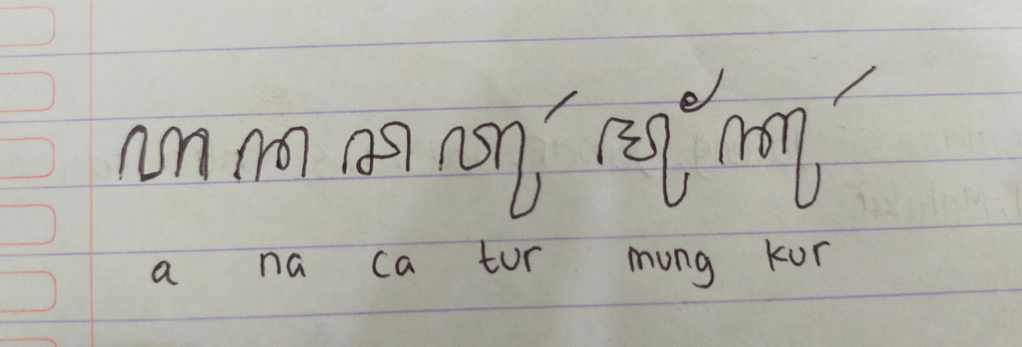 ꦲꦤꦕꦠꦸꦂꦩꦸꦁꦏꦸꦂ
a na ca tur mung kur